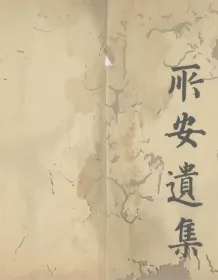 所安遺集